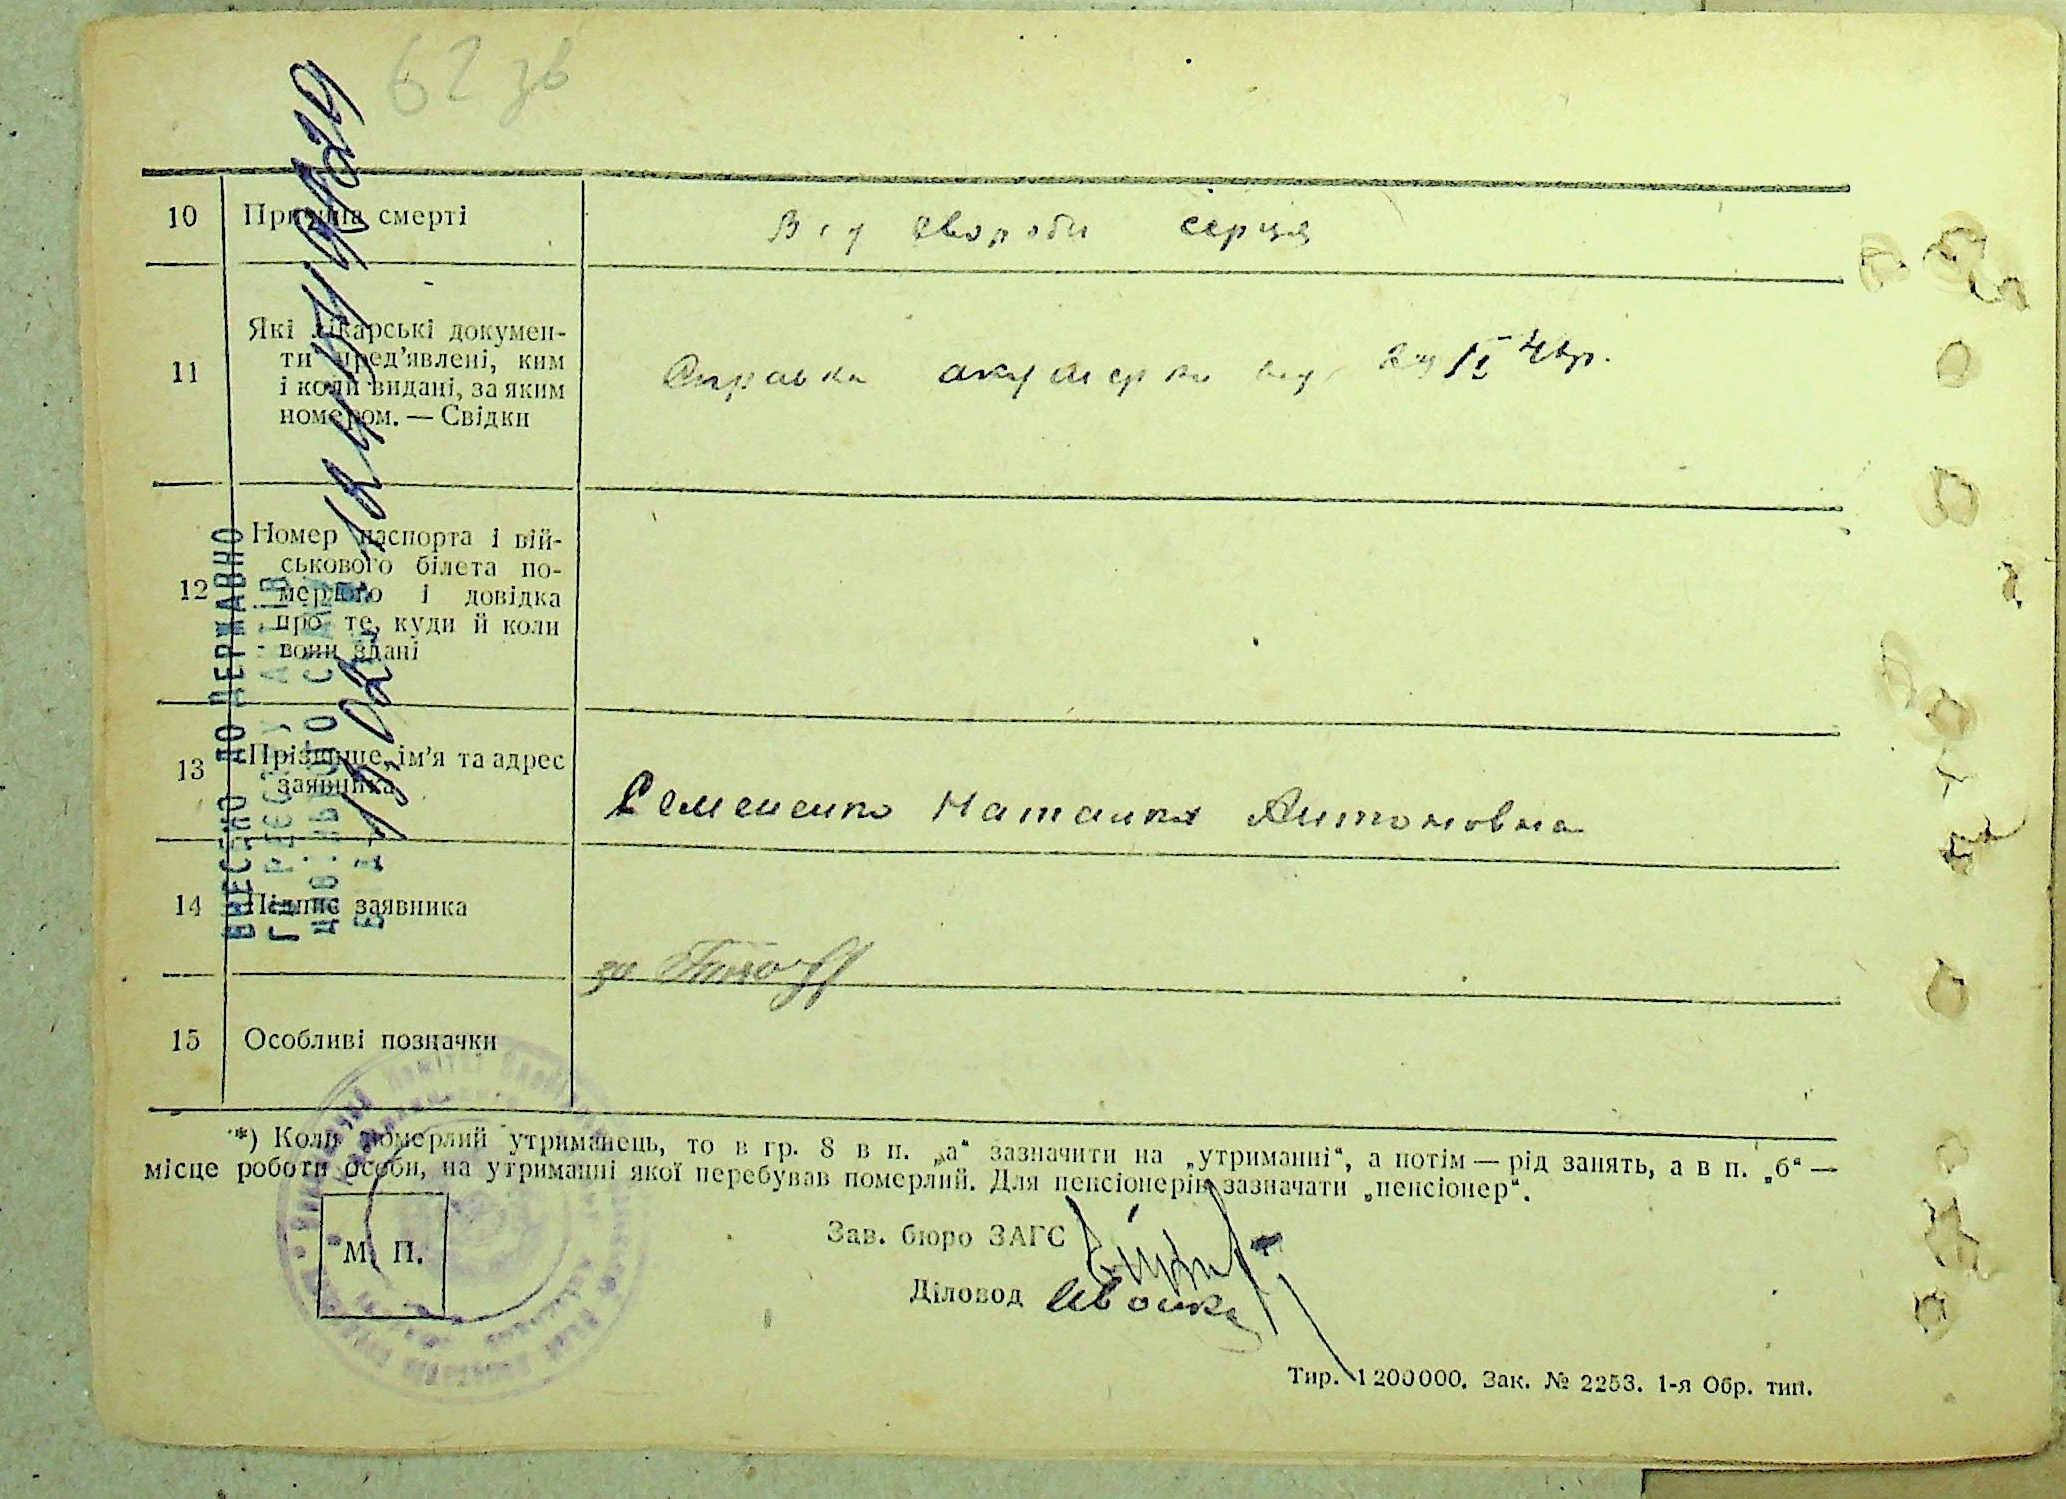 62 зв
10 Причина смерті
Від хвороби серця
11 Які лікарські докумен-
ти пред'явлені, ким
і коли видані, за яким
номером. — Свідки
Справка акушерки від
12 Номер паспорта і вій-
ськового білета по-
мерлого і довідка
про те, куди й коли
вони здані
13 Прізвище, ім'я та адрес
заявника
Семененко Наталка Антоновна
14 Підпис заявника
за
15 Особливі позначки
*) Коли померлий утриманець, то в гр. 8 в п. „а“ зазначити на „утриманні“, а потім — рід занять, а в п. „б“ —
місце роботи особи, на утриманні якої перебував померлий. Для пенсіонерів зазначати „пенсіонер“.
М. П.
Зав. бюро ЗАГС
Діловод
Тир. 1200000. Зак. № 2253. 1-я Обр. тип.
ВНЕСЕНО ДО ДЕРЖАВНО
ГО РЕЄСТРУ АКТІВ
ЦИВІЛЬНОГО СТАНУ